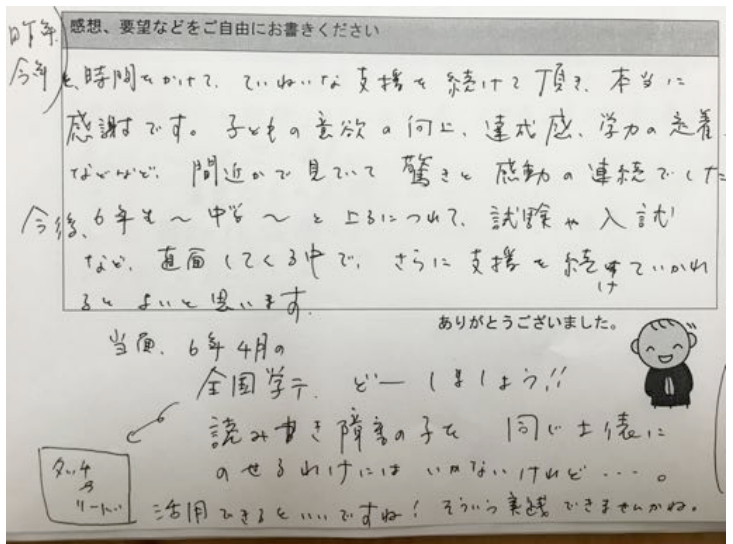 感想、要望などをご自由にお書きください
昨年
今年と、時間をかけて、ていねいな支援を続けて頂き、本当に
感謝です。子どもの意欲の向上、達成感、学力の定着
などなど、間近かで見ていて驚きと感動の連続でした
今後、6年生〜中学〜と上るにつれて、試験や入試
など、直面してくる中で、さらに支援を続けていかれ
るとよいと思います。
ありがとうございました。
当面、6年4月の
全国学テ、どーしましょう!!
読み書き障害の子を同じ土俵に
のせるわけにはいかないけれど・・・。
タッチ
&
リード
活用できるといいですね!そういう実践できませんかね。